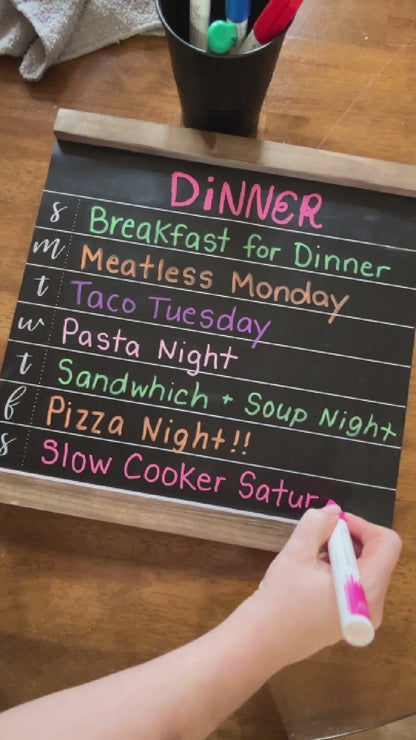 DiNNER
s Breakfast for Dinner
m Meatless Monday
t Taco Tuesday
w Pasta Night
t Sandwhich + Soup Night
f Pizza Night!!
s Slow Cooker Satur